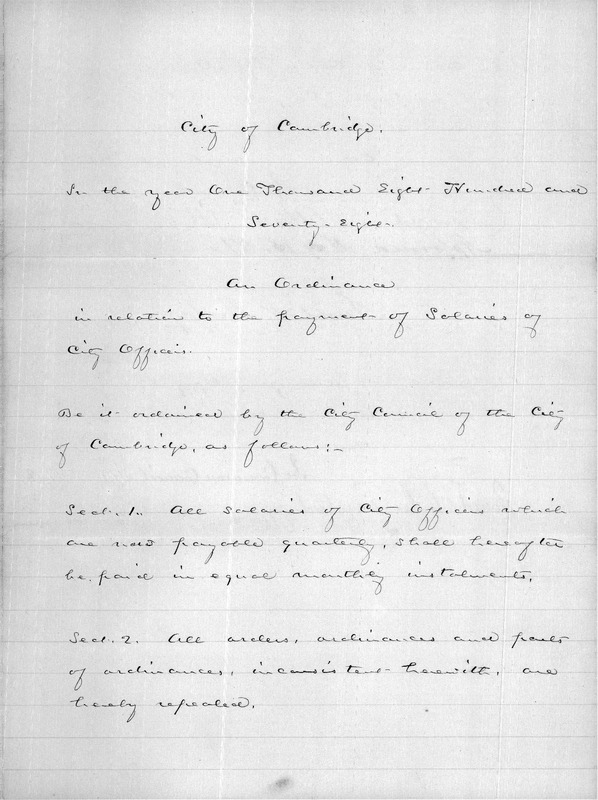 City of Cambridge.
In the year One Thousand Eight Hundred and
Seventy-Eight.
An Ordinance
in relation to the payment of Salaries of
City Officers.
Be it ordained by the City Council of the City
of Cambridge, as follows:-
Sect. 1. All salaries of City Officers which
are now payable quarterly, shall hereafter
be paid in equal monthly instalments.
Sect. 2. All orders, ordinances and parts
of ordinances, inconsistent herewith, are
hereby repealed.